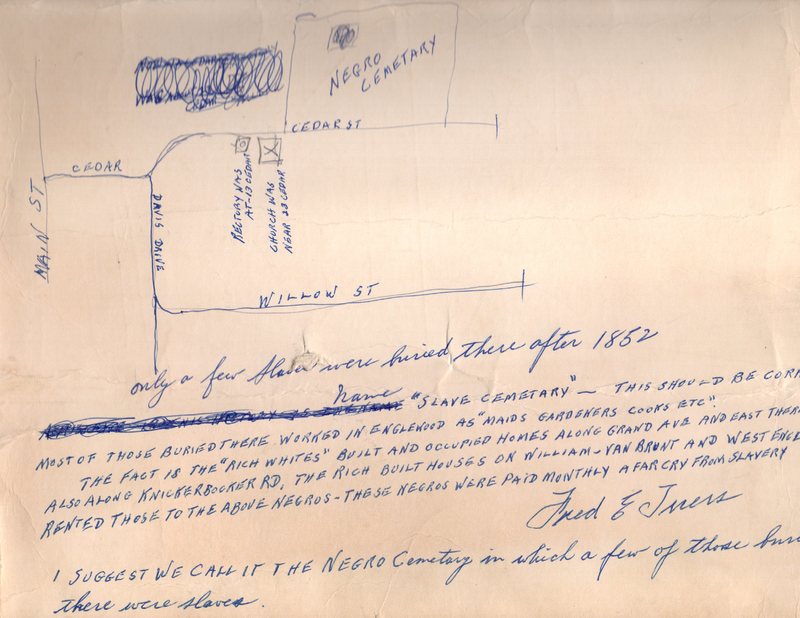 NEGRO
CEMETARY
CEDAR ST
CEDAR
MAIN ST
DAVIS DRIVE
RECTORY WAS
AT-13 CEDAR
CHURCH WAS
NEAR 23 CEDAR
WILLOW ST
only a few slaves were buried there after 1852
name
"SLAVE CEMETARY" — THIS SHOULD BE CORR
MOST OF THOSE BURIED THERE WORKED IN ENGLEWOOD AS "MAIDS GARDENERS COOKS ETC"
THE FACT IS THE "RICH WHITES" BUILT AND OCCUPIED HOMES ALONG GRAND AVE AND EAST THERE
ALSO ALONG KNICKERBOCKER RD. THE RICH BUILT HOUSES ON WILLIAM-VAN BRUNT AND WEST ENGL
RENTED THOSE TO THE ABOVE NEGROS - THESE NEGROS WERE PAID MONTHLY A FAR CRY FROM SLAVERY
Fred E
I SUGGEST WE CALL IT THE NEGRO Cemetary in which a few of those buri
there were slaves.